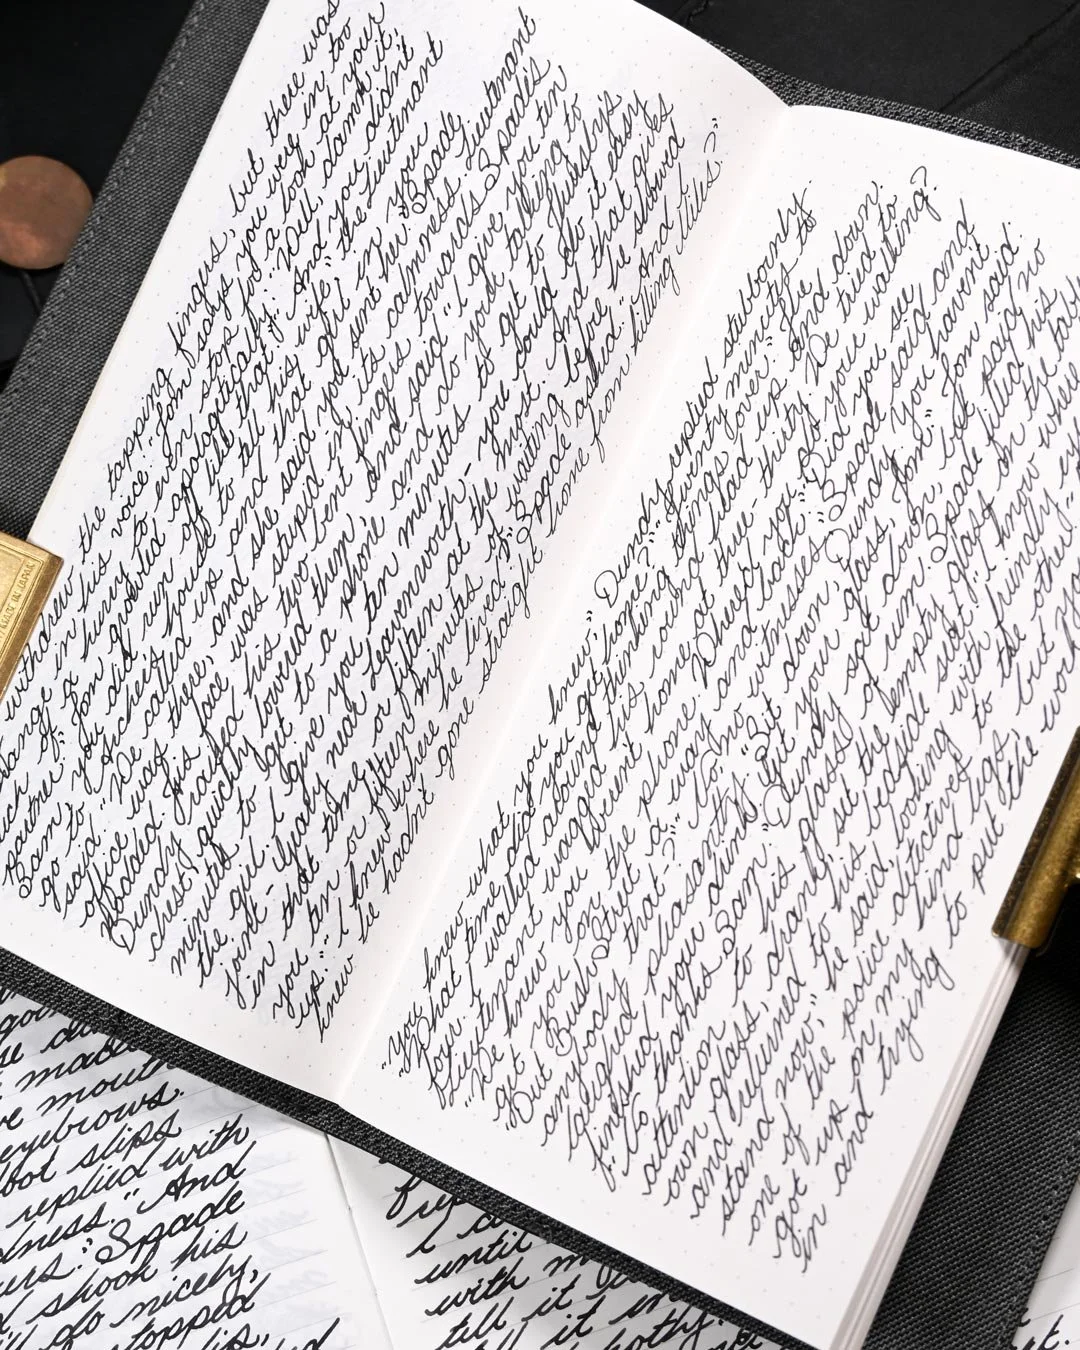 withdrew the tapping fingers, but there was
change in his voice. "Tom says you were in too
much of a hurry to even stop for a look at your
partner." Tom growled apologetically: "Well, damn it,
Sam, you did run off like that." "And you didn't
go to Archer's house to tell his wife," the Lieutenant
said. "We called up and that girl in your
office was there, and she said you sent her." Spade
nodded. His face was stupid in its calmness. Lieutenant
Dundy raised his two bent fingers towards Spade's
chest, quickly lowered them, and said "I give you ten
minutes to get to a phone and do your talking to
the girl. I give you ten minutes to get to Thursby's
joint - Geary near Leavenworth - you could do it easy
in that time, or fifteen at the most. And that gives
you ten or fifteen minutes of waiting before he showed
up." "I knew where he lived?" Spade asked. "And I
knew he hadn't gone straight home from killing Miles?"
"You knew what you knew," Dundy replied stubbornly.
"What time did you get home?" "Twenty minutes to
four. I walked around thinking things over." The
Lieutenant wagged his round head up and down.
"We knew you weren't home at three-thirty. We tried to
get you on the phone. Where'd you do your walking?"
"Out Bush Street a way and back." "Did you see
anybody that-?" "No, no witnesses." Spade said and
laughed pleasantly. "Sit down, Dundy. You haven't
finished your drink. Get your glass, Tom." Tom said
"No thanks Sam." Dundy sat down, but paid no
attention to his glass of rum. Spade filled his
own glass, drank, set the empty glass on the table
and returned to his bedside seat. "I know where
stand now," he said, looking with friendly
one of the police detectives to the other.
got up on my hind legs, but you
in and trying to put the work
made
mouth
eyebrows.
slips
replied with
"And
Spade
shook his
do nicely,
stopped
until
with
tell it
MADE IN JAPAN